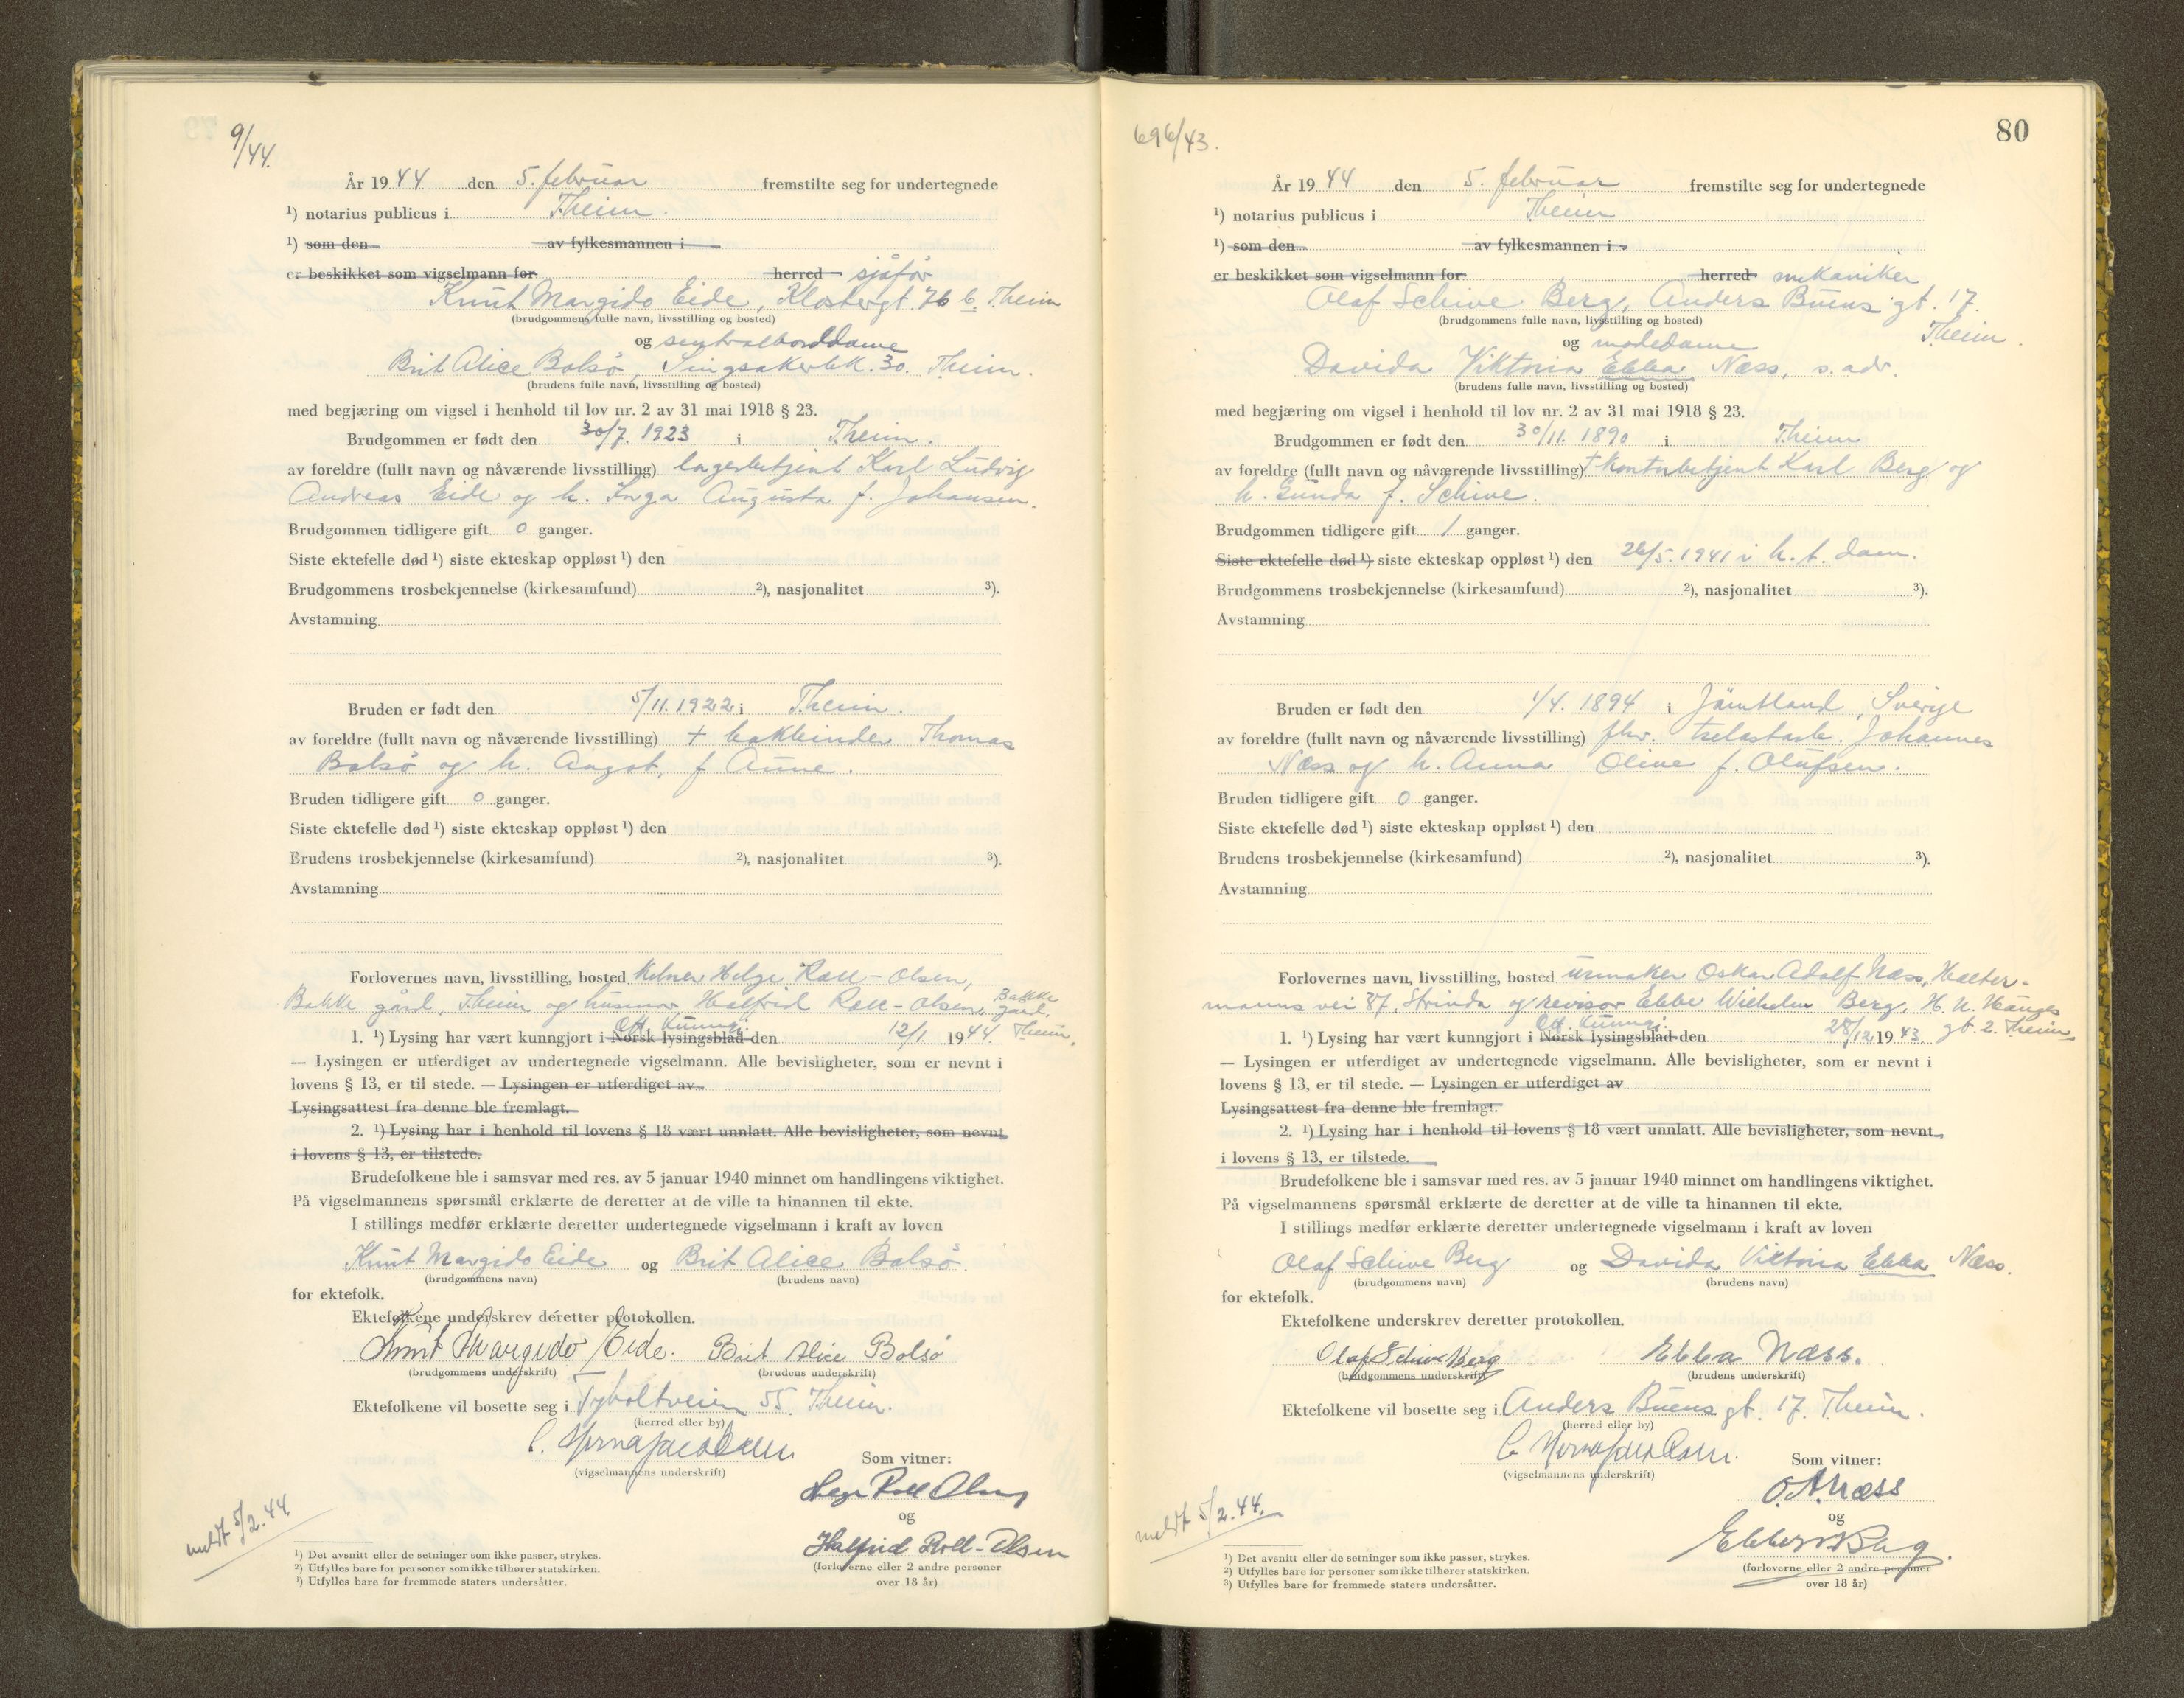 9/44.
År 1944 den 5. februar fremstilte seg for undertegnede
¹) notarius publicus i Theim.
¹) som den av fylkesmannen i
er beskikket som vigselmann for herred sjåfør
Knut Margido Eide, Klostergt. 76 b. Theim
(brudgommens fulle navn, livsstilling og bosted)
og sentralborddame
Brit Alice Bolsø, Singsakerbk. 30. Theim.
(brudens fulle navn, livsstilling og bosted)
med begjæring om vigsel i henhold til lov nr. 2 av 31 mai 1918 § 23.
Brudgommen er født den 30/7. 1923 i Theim.
av foreldre (fullt navn og nåværende livsstilling) lagerbetjent Karl Ludvig
Andreas Eide og h. Inga Augusta f. Johansen.
Brudgommen tidligere gift 0 ganger.
Siste ektefelle død ¹) siste ekteskap oppløst ¹) den
Brudgommens trosbekjennelse (kirkesamfund) ²), nasjonalitet ³).
Avstamning
Bruden er født den 5/11. 1922 i Theim.
av foreldre (fullt navn og nåværende livsstilling) + bokbinder Thomas
Bolsø og h. Augot, f Aune.
Bruden tidligere gift 0 ganger.
Siste ektefelle død ¹) siste ekteskap oppløst ¹) den
Brudens trosbekjennelse (kirkesamfund) ²), nasjonalitet ³).
Avstamning
Forlovernes navn, livsstilling, bosted kelner Helge Roll-Olsen,
Bakke gård, Theim og husmor Halfrid Roll-Olsen, Bakke gård, Theim.
Off. kunngj.
1. ¹) Lysing har vært kunngjort i Norsk lysingsblad den 12/1. 1944.
— Lysingen er utferdiget av undertegnede vigselmann. Alle bevisligheter, som er nevnt i
lovens § 13, er til stede. — Lysingen er utferdiget av
Lysingsattest fra denne ble fremlagt.
2. ¹) Lysing har i henhold til lovens § 18 vært unnlatt. Alle bevisligheter, som nevnt
i lovens § 13, er tilstede.
Brudefolkene ble i samsvar med res. av 5 januar 1940 minnet om handlingens viktighet.
På vigselmannens spørsmål erklærte de deretter at de ville ta hinannen til ekte.
I stillings medfør erklærte deretter undertegnede vigselmann i kraft av loven
Knut Margido Eide og Brit Alice Bolsø
(brudgommens navn) (brudens navn)
for ektefolk.
Ektefolkene underskrev deretter protokollen.
Knut Margido Eide. Brit Alice Bolsø
(brudgommens underskrift) (brudens underskrift)
Ektefolkene vil bosette seg i Tyholtveien 55. Theim.
(herred eller by)
(vigselmannens underskrift) Som vitner:
Helge Roll Olsen
og
Halfrid Roll-Olsen
(forloverne eller 2 andre personer
over 18 år)
meldt 5/2.44.
¹) Det avsnitt eller de setninger som ikke passer, strykes.
²) Utfylles bare for personer som ikke tilhører statskirken.
³) Utfylles bare for fremmede staters undersåtter.
696/43.
80
År 1944 den 5. februar fremstilte seg for undertegnede
¹) notarius publicus i Theim
¹) som den av fylkesmannen i
er beskikket som vigselmann for herred mekaniker
Olaf Schive Berg, Anders Buens gt. 17.
(brudgommens fulle navn, livsstilling og bosted) Theim.
og motedame
Davida Viktoria Ebba Næss, s. adr.
(brudens fulle navn, livsstilling og bosted)
med begjæring om vigsel i henhold til lov nr. 2 av 31 mai 1918 § 23.
Brudgommen er født den 30/11. 1890 i Theim
av foreldre (fullt navn og nåværende livsstilling) + kontorbetjent Karl Berg og
h. Gunda f. Schive.
Brudgommen tidligere gift 1 ganger.
Siste ektefelle død ¹) siste ekteskap oppløst ¹) den 26/5. 1941 i h. t. dom.
Brudgommens trosbekjennelse (kirkesamfund) ²), nasjonalitet ³).
Avstamning
Bruden er født den 1/4. 1894 i Jämtland, Sverige
av foreldre (fullt navn og nåværende livsstilling) fhv. Johannes
Næss og h. Anna Oline f. Olufsen.
Bruden tidligere gift 0 ganger.
Siste ektefelle død ¹) siste ekteskap oppløst ¹) den
Brudens trosbekjennelse (kirkesamfund) ²), nasjonalitet ³).
Avstamning
Forlovernes navn, livsstilling, bosted urmaker Oskar Adolf Næss, Halter-
manns vei 37, Strinda og revisor Ebbe Wilhelm Berg,
gt. 2. Theim
Off. kunngj.
1. ¹) Lysing har vært kunngjort i Norsk lysingsblad den 28/12 1943.
— Lysingen er utferdiget av undertegnede vigselmann. Alle bevisligheter, som er nevnt i
lovens § 13, er til stede. — Lysingen er utferdiget av
Lysingsattest fra denne ble fremlagt.
2. ¹) Lysing har i henhold til lovens § 18 vært unnlatt. Alle bevisligheter, som nevnt
i lovens § 13, er tilstede.
Brudefolkene ble i samsvar med res. av 5 januar 1940 minnet om handlingens viktighet.
På vigselmannens spørsmål erklærte de deretter at de ville ta hinannen til ekte.
I stillings medfør erklærte deretter undertegnede vigselmann i kraft av loven
Olaf Schive Berg og Davida Viktoria Ebba Næss.
(brudgommens navn) (brudens navn)
for ektefolk.
Ektefolkene underskrev deretter protokollen.
Olaf Schive Berg Ebba Næss.
(brudgommens underskrift) (brudens underskrift)
Ektefolkene vil bosette seg i Anders Buens gt. 17. Theim.
(herred eller by)
(vigselmannens underskrift) Som vitner:
O. A. Næss
og
Ebbe W Berg.
(forloverne eller 2 andre personer
over 18 år)
meldt 5/2.44.
¹) Det avsnitt eller de setninger som ikke passer, strykes.
²) Utfylles bare for personer som ikke tilhører statskirken.
³) Utfylles bare for fremmede staters undersåtter.